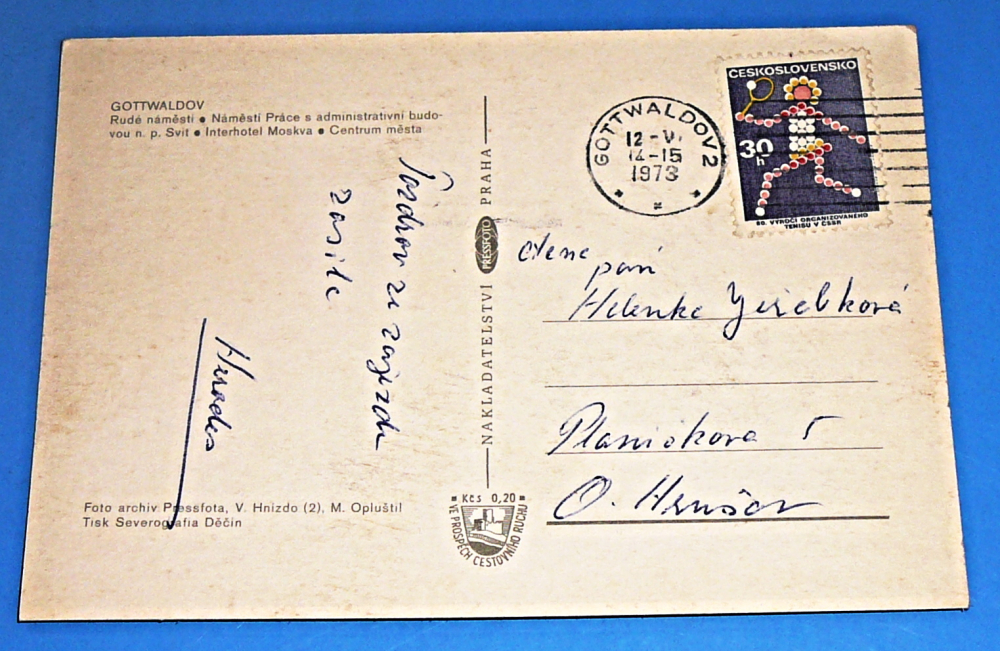 GOTTWALDOV
Rudé náměstí • Náměstí Práce s administrativní budo-
vou n. p. Svit • Interhotel Moskva • Centrum města
Pozdrav ze zájezdu
zasílá
Foto archiv Pressfota, V. Hnízdo (2), M. Opluštil
Tisk Severografia Děčín
NAKLADATELSTVÍ PRESSFOTO PRAHA
Kčs 0,20
VE PROSPĚCH CESTOVNÍHO RUCHU
GOTTWALDOV 2
12-V
14-15
1973
ČESKOSLOVENSKO
30 h
80. VÝROČÍ ORGANIZOVANÉHO
TENISU V ČSSR
paní
Helenka Jeřábková
Planičkova 5
O. Hrušov